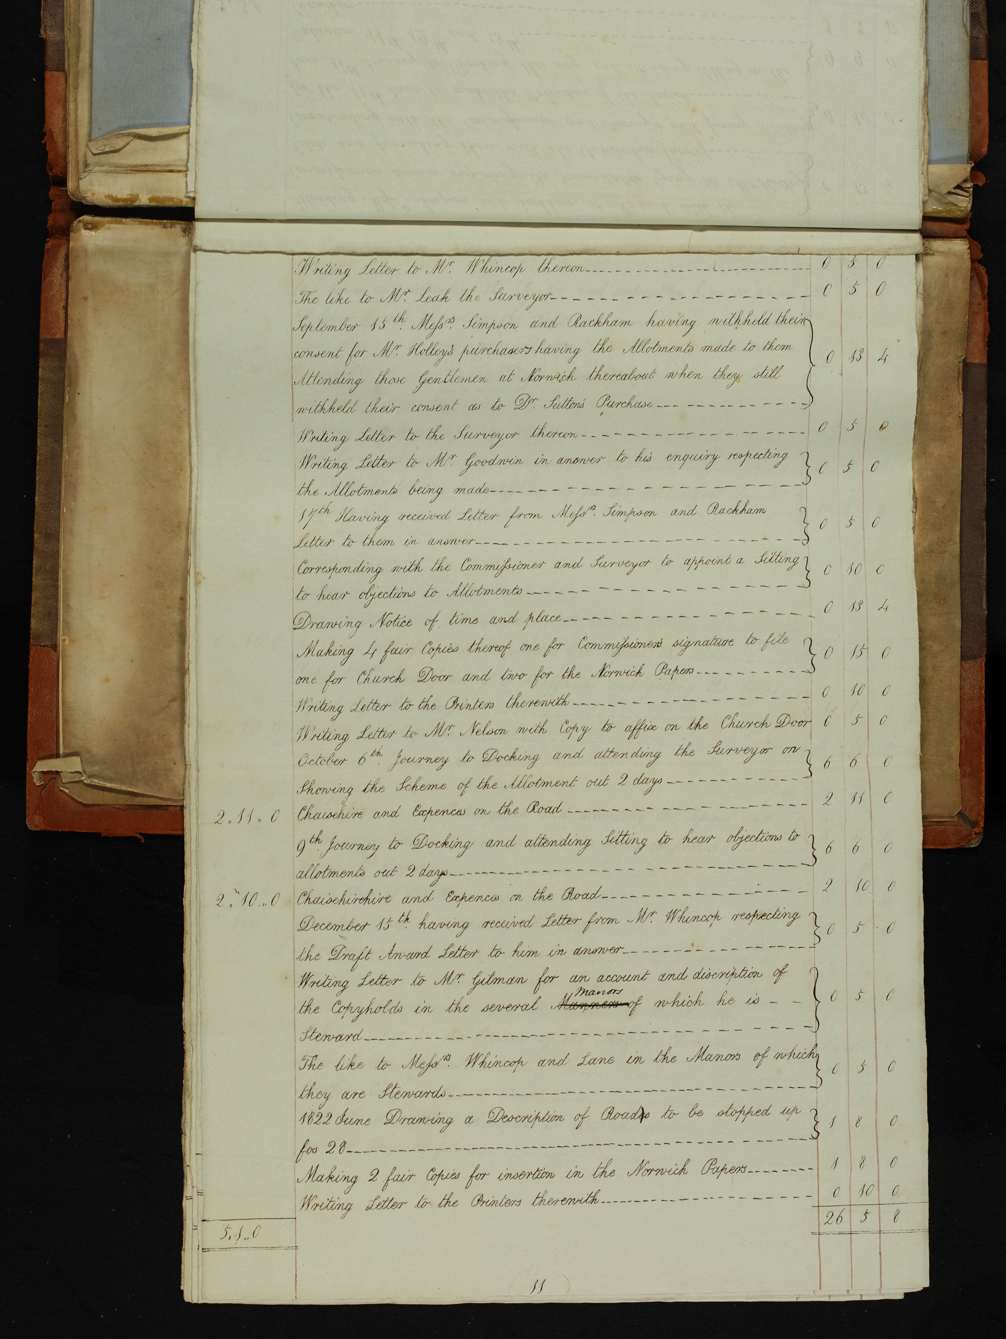 Writing Letter to Mr. Whincop thereon 0 5 0
The like to Mr. Leak the Surveyor 0 5 0
September 15th. Messrs. Simpson and Rackham having withheld their
consent for Mr. Holley's purchasers having the Allotments made to them
Attending those Gentlemen at Norwich thereabout when they still
withheld their consent as to Dr. Sutton's Purchase 0 13 4
Writing Letter to the Surveyor thereon 0 5 0
Writing Letter to Mr. Goodwin in answer to his enquiry respecting
the Allotments being made 0 5 0
17th Having received Letter from Messrs. Simpson and Rackham
Letter to them in answer 0 5 0
Corresponding with the Commissioner and Surveyor to appoint a Sitting
to hear objections to Allotments 0 10 0
Drawing Notice of time and place 0 13 4
Making 4 fair Copies thereof one for Commissioners signature to file
one for Church Door and two for the Norwich Papers 0 15 0
Writing Letter to the Printers therewith 0 10 0
Writing Letter to Mr. Nelson with Copy to affix on the Church Door 0 5 0
October 6th. Journey to Docking and attending the Surveyor on
Showing the Scheme of the Allotment out 2 days 6 6 0
2.11.0 Chaisehire and Expences on the Road 2 11 0
9th Journey to Docking and attending Sitting to hear objections to
allotments out 2 days 6 6 0
2.10.0 Chaisehirehire and Expences on the Road 2 10 0
December 15th having received Letter from Mr. Whincop respecting
the Draft Award Letter to him in answer 0 5 0
Writing Letter to Mr Gilman for an account and discription of
Manors
the Copyholds in the several Manners of which he is
Steward 0 5 0
The like to Messrs. Whincop and Lane in the Manors of which
they are Stewards 0 5 0
1822 June Drawing a Description of Roads to be stopped up
fos 28 1 8 0
Making 2 fair Copies for insertion in the Norwich Papers 1 8 0
Writing Letter to the Printers therewith 0 10 0
5.1.0 26 5 8
11